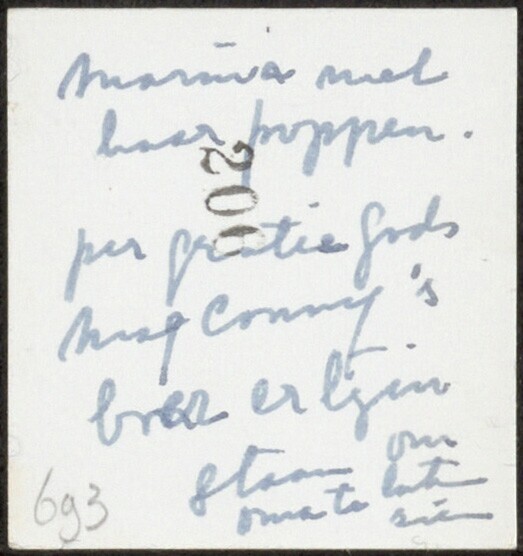 marina met
haar poppen.
200
per gratie gods
mag Conny's
broer er bij
staan om
oma te laten
zien
693